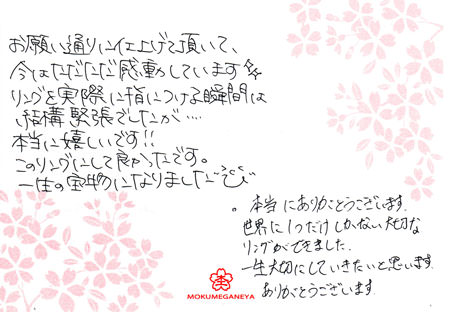 お願い通りに仕上げて頂いて、
今はただただ感動しています
リングを実際に指につける瞬間は
結構緊張でしたが…
本当に嬉しいです!!
このリングにして良かったです。
一生の宝物になりました
。本当にありがとうございます。
世界に1つだけしかない大切な
リングができました。
一生大切にしていきたいと思います。
ありがとうございます。
MOKUMEGANEYA